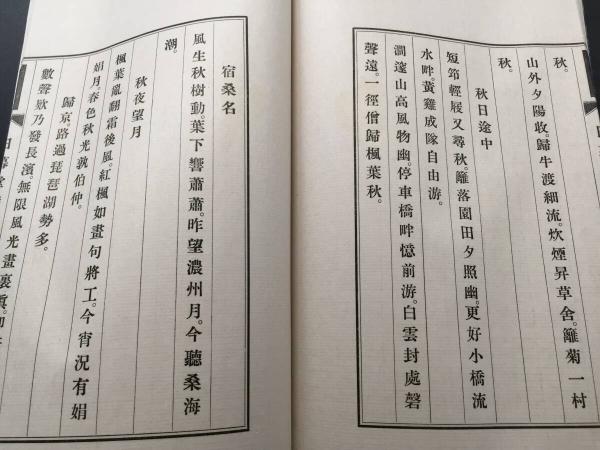 秋。
山外夕陽收。歸牛渡細流。炊煙昇草舍。籬菊一村
秋。
秋日途中
短筇輕屐又尋秋。籬落園田夕照幽。更好小橋流
水畔。黃雞成隊自由游。
澗邃山高風物幽。停車橋畔憶前游。白雲封處磬
聲遠。一徑僧歸楓葉秋。
宿桑名
風生秋樹動。葉下響蕭蕭。昨望濃州月。今聽桑海
潮。
秋夜望月
楓葉亂翻霜後風。紅楓如畫句將工。今宵況有娟
娟月。春色秋光孰伯仲。
歸京。路過琵琶湖勢多。
數聲欸乃發長濱。無限風光畫裏眞。